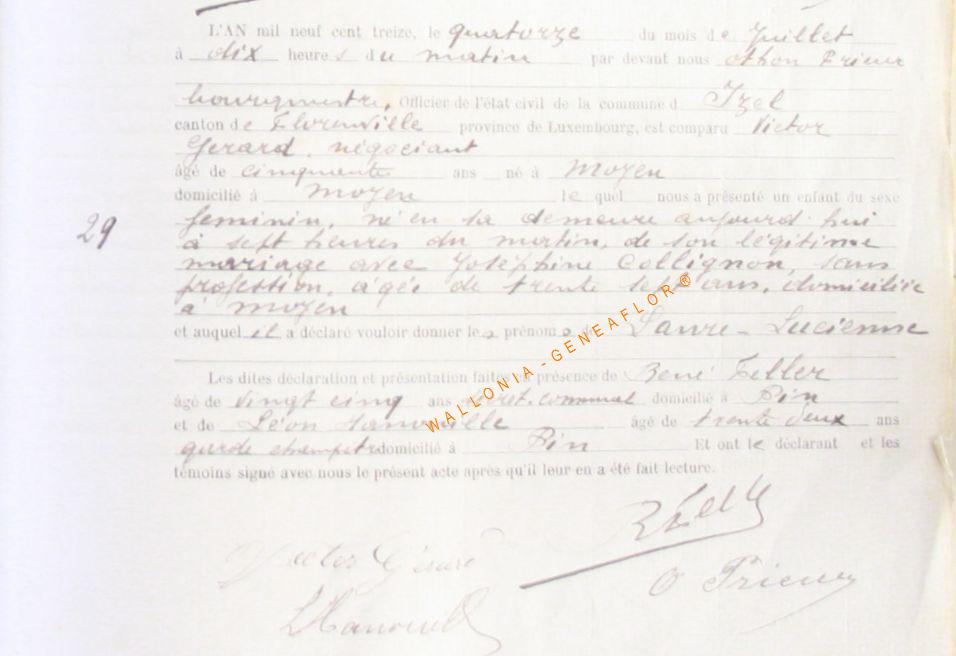 L'AN mil neuf cent treize, le quatorze du mois de Juillet
à dix heures du matin par devant nous Othon Prieur
bourgmestre, Officier de l'état civil de la commune d Izel
canton de Florenville province de Luxembourg, est comparu Victor
Gerard, négociant
âgé de cinquante ans né à Moyen
domicilié à Moyen lequel nous a présenté un enfant du sexe
29
feminin, né en sa demeure aujourd'hui
à sept heures du matin, de son légitime
mariage avec Joséphine Collignon, sans
profession, agée de trente sept ans, domiciliée
à Moyen
et auquel il a déclaré vouloir donner les prénoms de Laure-Lucienne
Les dites déclaration et présentation faites en présence de René Feller
âgé de vingt cinq ans secret. communal domicilié à Pin
et de Léon âgé de trente deux ans
garde champêtre domicilié à Pin Et ont le déclarant et les
témoins signé avec nous le présent acte après qu'il leur en a été fait lecture.
Victor Gérard
O Prieur
WALLONIA-GENEAFLOR®